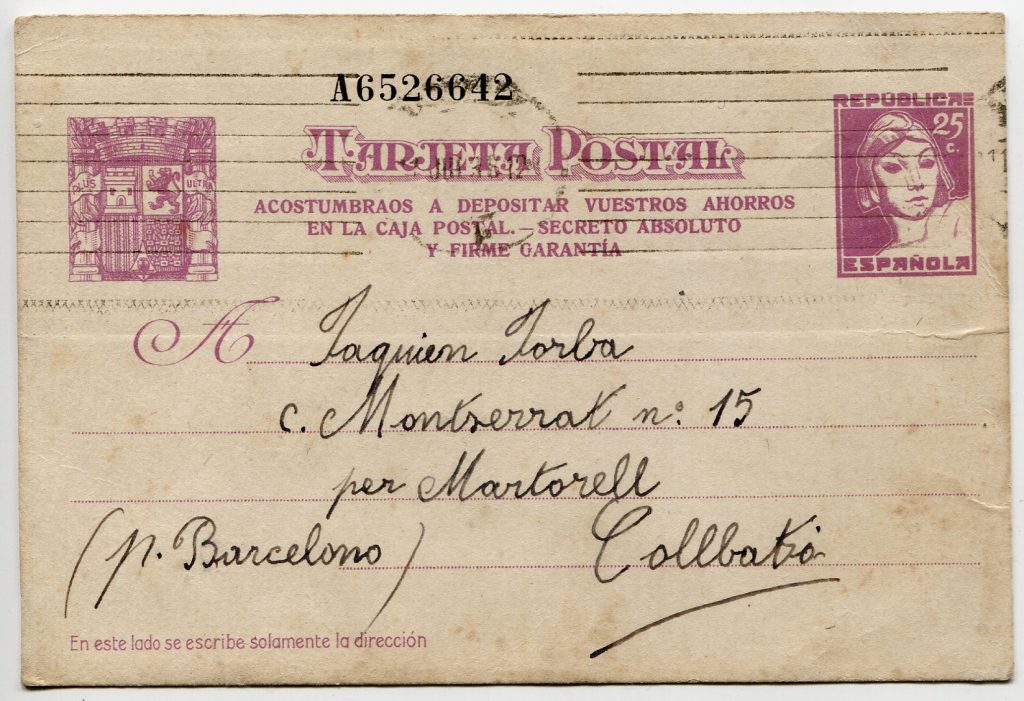 A6526642
TARJETA POSTAL
REPÚBLICA
25 c.
PLUS ULTRA
ACOSTUMBRAOS A DEPOSITAR VUESTROS AHORROS
EN LA CAJA POSTAL.—SECRETO ABSOLUTO
Y FIRME GARANTÍA
ESPAÑOLA
A Jaquien Jorba
c. Montserrat nº 15
per Martorell
(p. Barcelona) Collbató
En este lado se escribe solamente la dirección